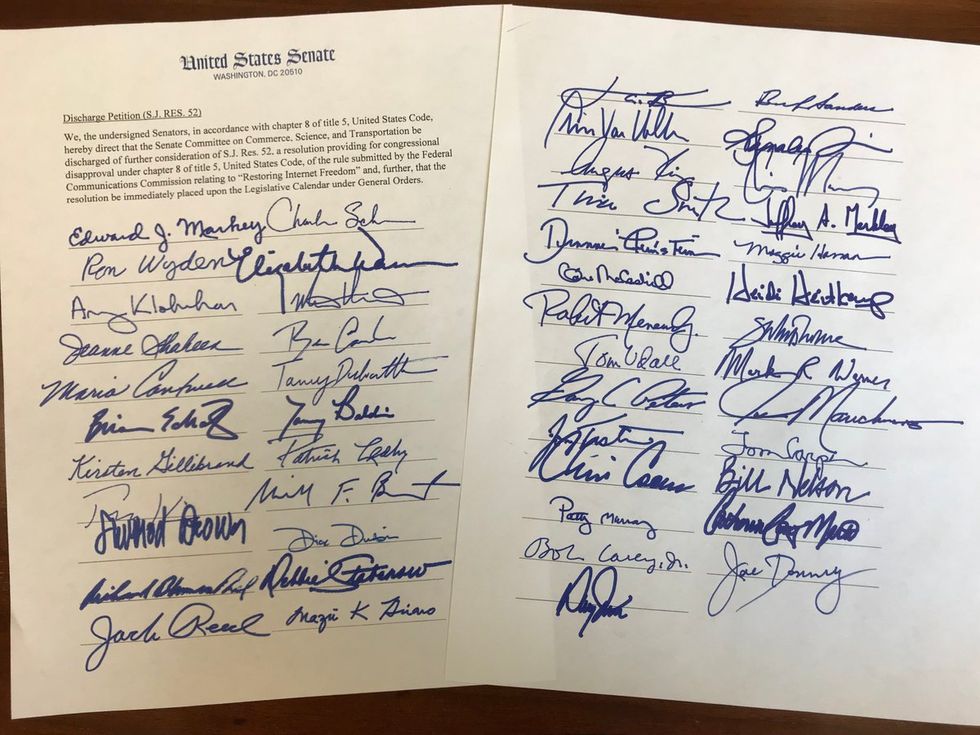 United States Senate
WASHINGTON, DC 20510
Discharge Petition (S.J. RES. 52)
We, the undersigned Senators, in accordance with chapter 8 of title 5, United States Code,
hereby direct that the Senate Committee on Commerce, Science, and Transportation be
discharged of further consideration of S.J. Res. 52, a resolution providing for congressional
disapproval under chapter 8 of title 5, United States Code, of the rule submitted by the Federal
Communications Commission relating to “Restoring Internet Freedom” and, further, that the
resolution be immediately placed upon the Legislative Calendar under General Orders.
Edward J. Markey Charles
Ron Wyden Elizabeth Warren
Amy Klobuchar
Jeanne Shaheen Ben
Maria Cantwell Tammy Duckworth
Brian Schatz Tammy Baldwin
Kirsten Gillibrand Patrick Leahy
F.
Sherrod Brown
Dick Durbin
Richard Blumenthal Debbie Stabenow
Jack Reed Mazie K Hirono
Sanders
Chris Van Hollen
Angus King
Tina Smith Jeffrey A. Merkley
Dianne Feinstein Maggie Hassan
Heidi Heitkamp
Robert Menendez
Tom Udall Mark R Warner
Gary C Peters Joe Manchin
Tom Carper
Chris Coons Bill Nelson
Patty Murray Catherine Cortez Masto
Bob Casey, Jr. Joe Donnelly